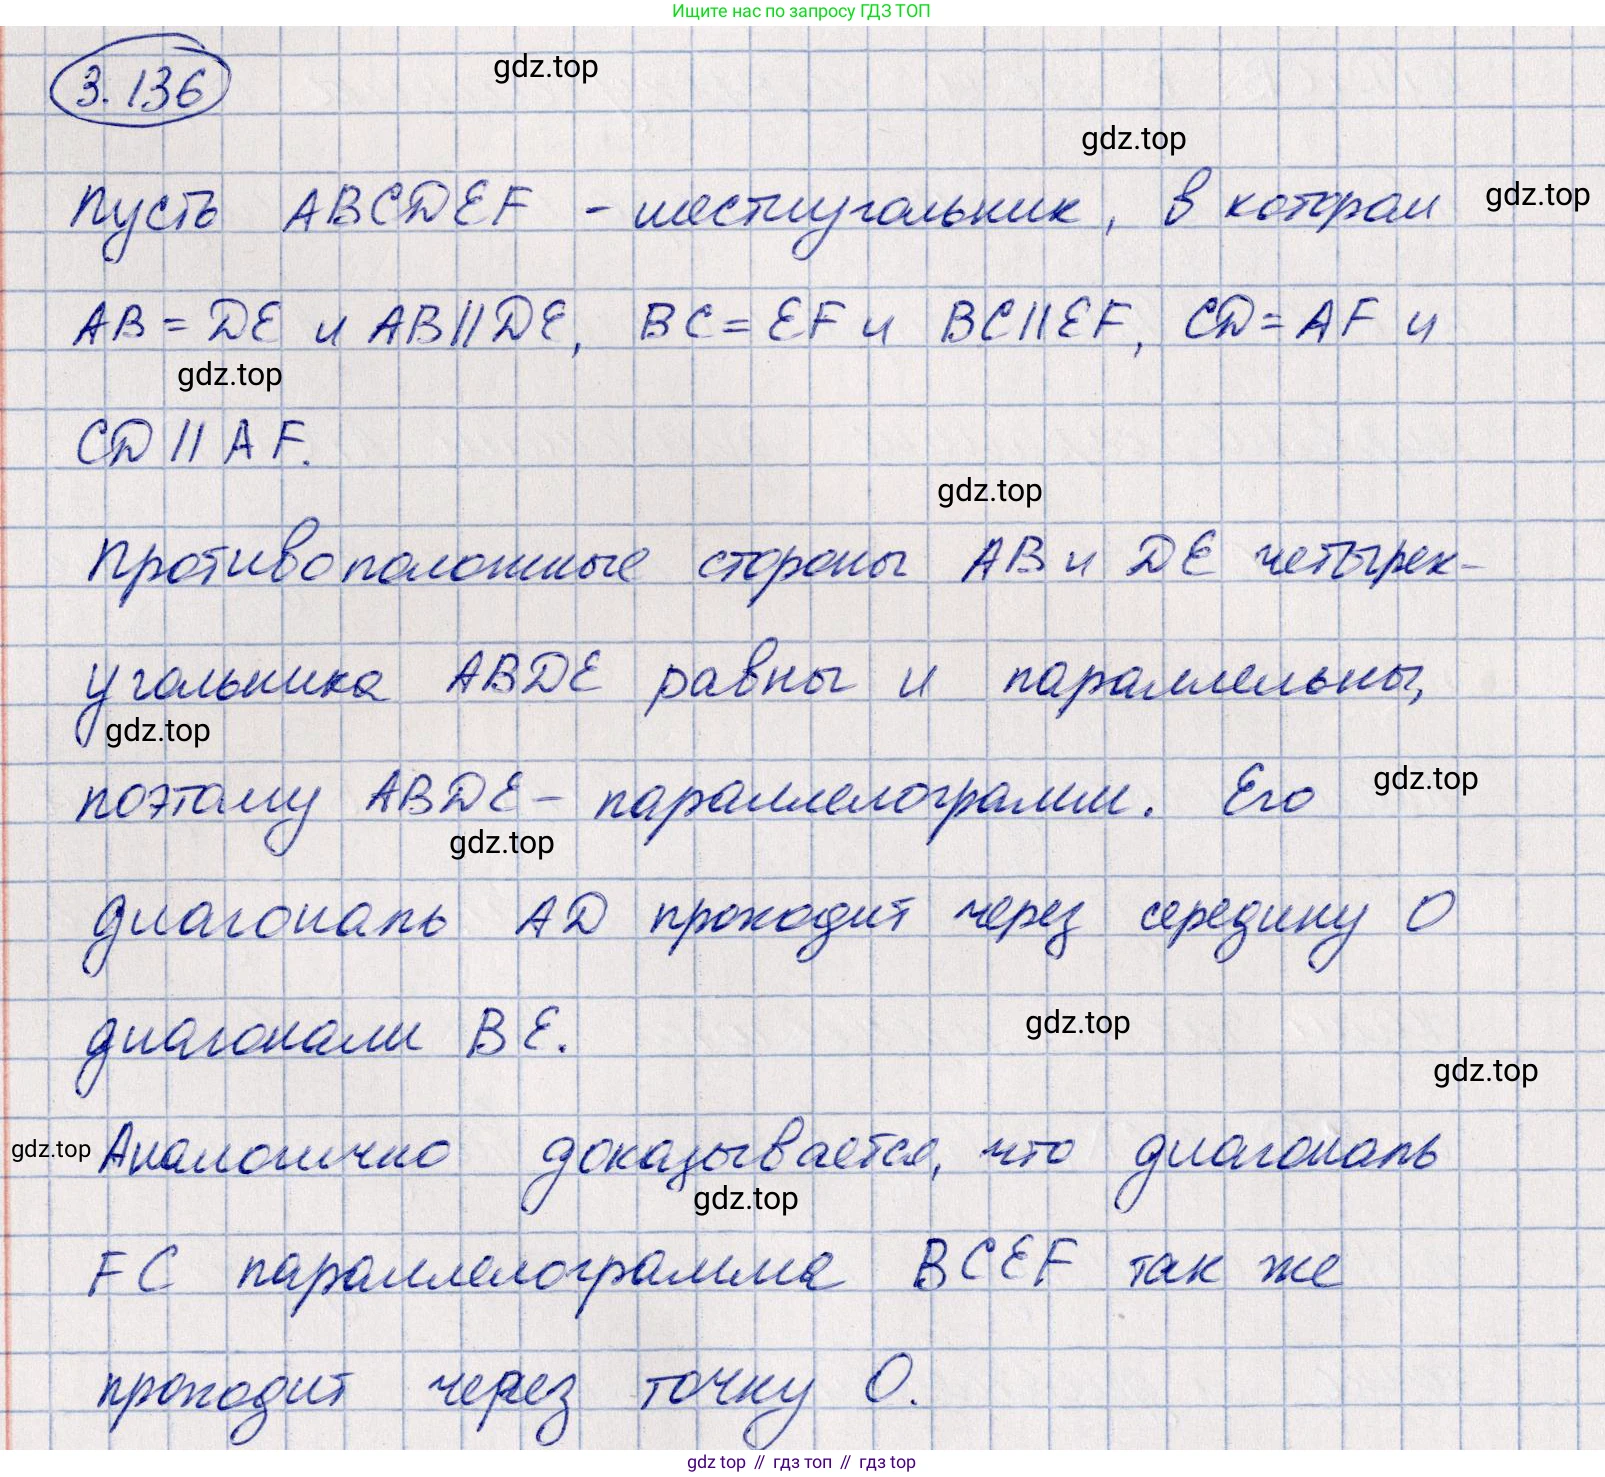 Ищите нас по запросу ГДЗ ТОП
3.136
gdz.top
gdz.top
gdz.top
Пусть ABCDEF - шестиугольник, в котором
AB = DE и AB || DE, BC = EF и BC || EF, CD = AF и
gdz.top
CD || AF.
gdz.top
Противоположные стороны AB и DE четырех-
угольника ABDE равны и параллельны,
gdz.top
поэтому ABDE - параллелограмм. Его
gdz.top
gdz.top
диагональ AD проходит через середину O
диагонали BE.
gdz.top
gdz.top
gdz.top
Аналогично доказывается, что диагональ
gdz.top
FC параллелограмма BCEF так же
проходит через точку O.
gdz top // гдз топ // гдз top